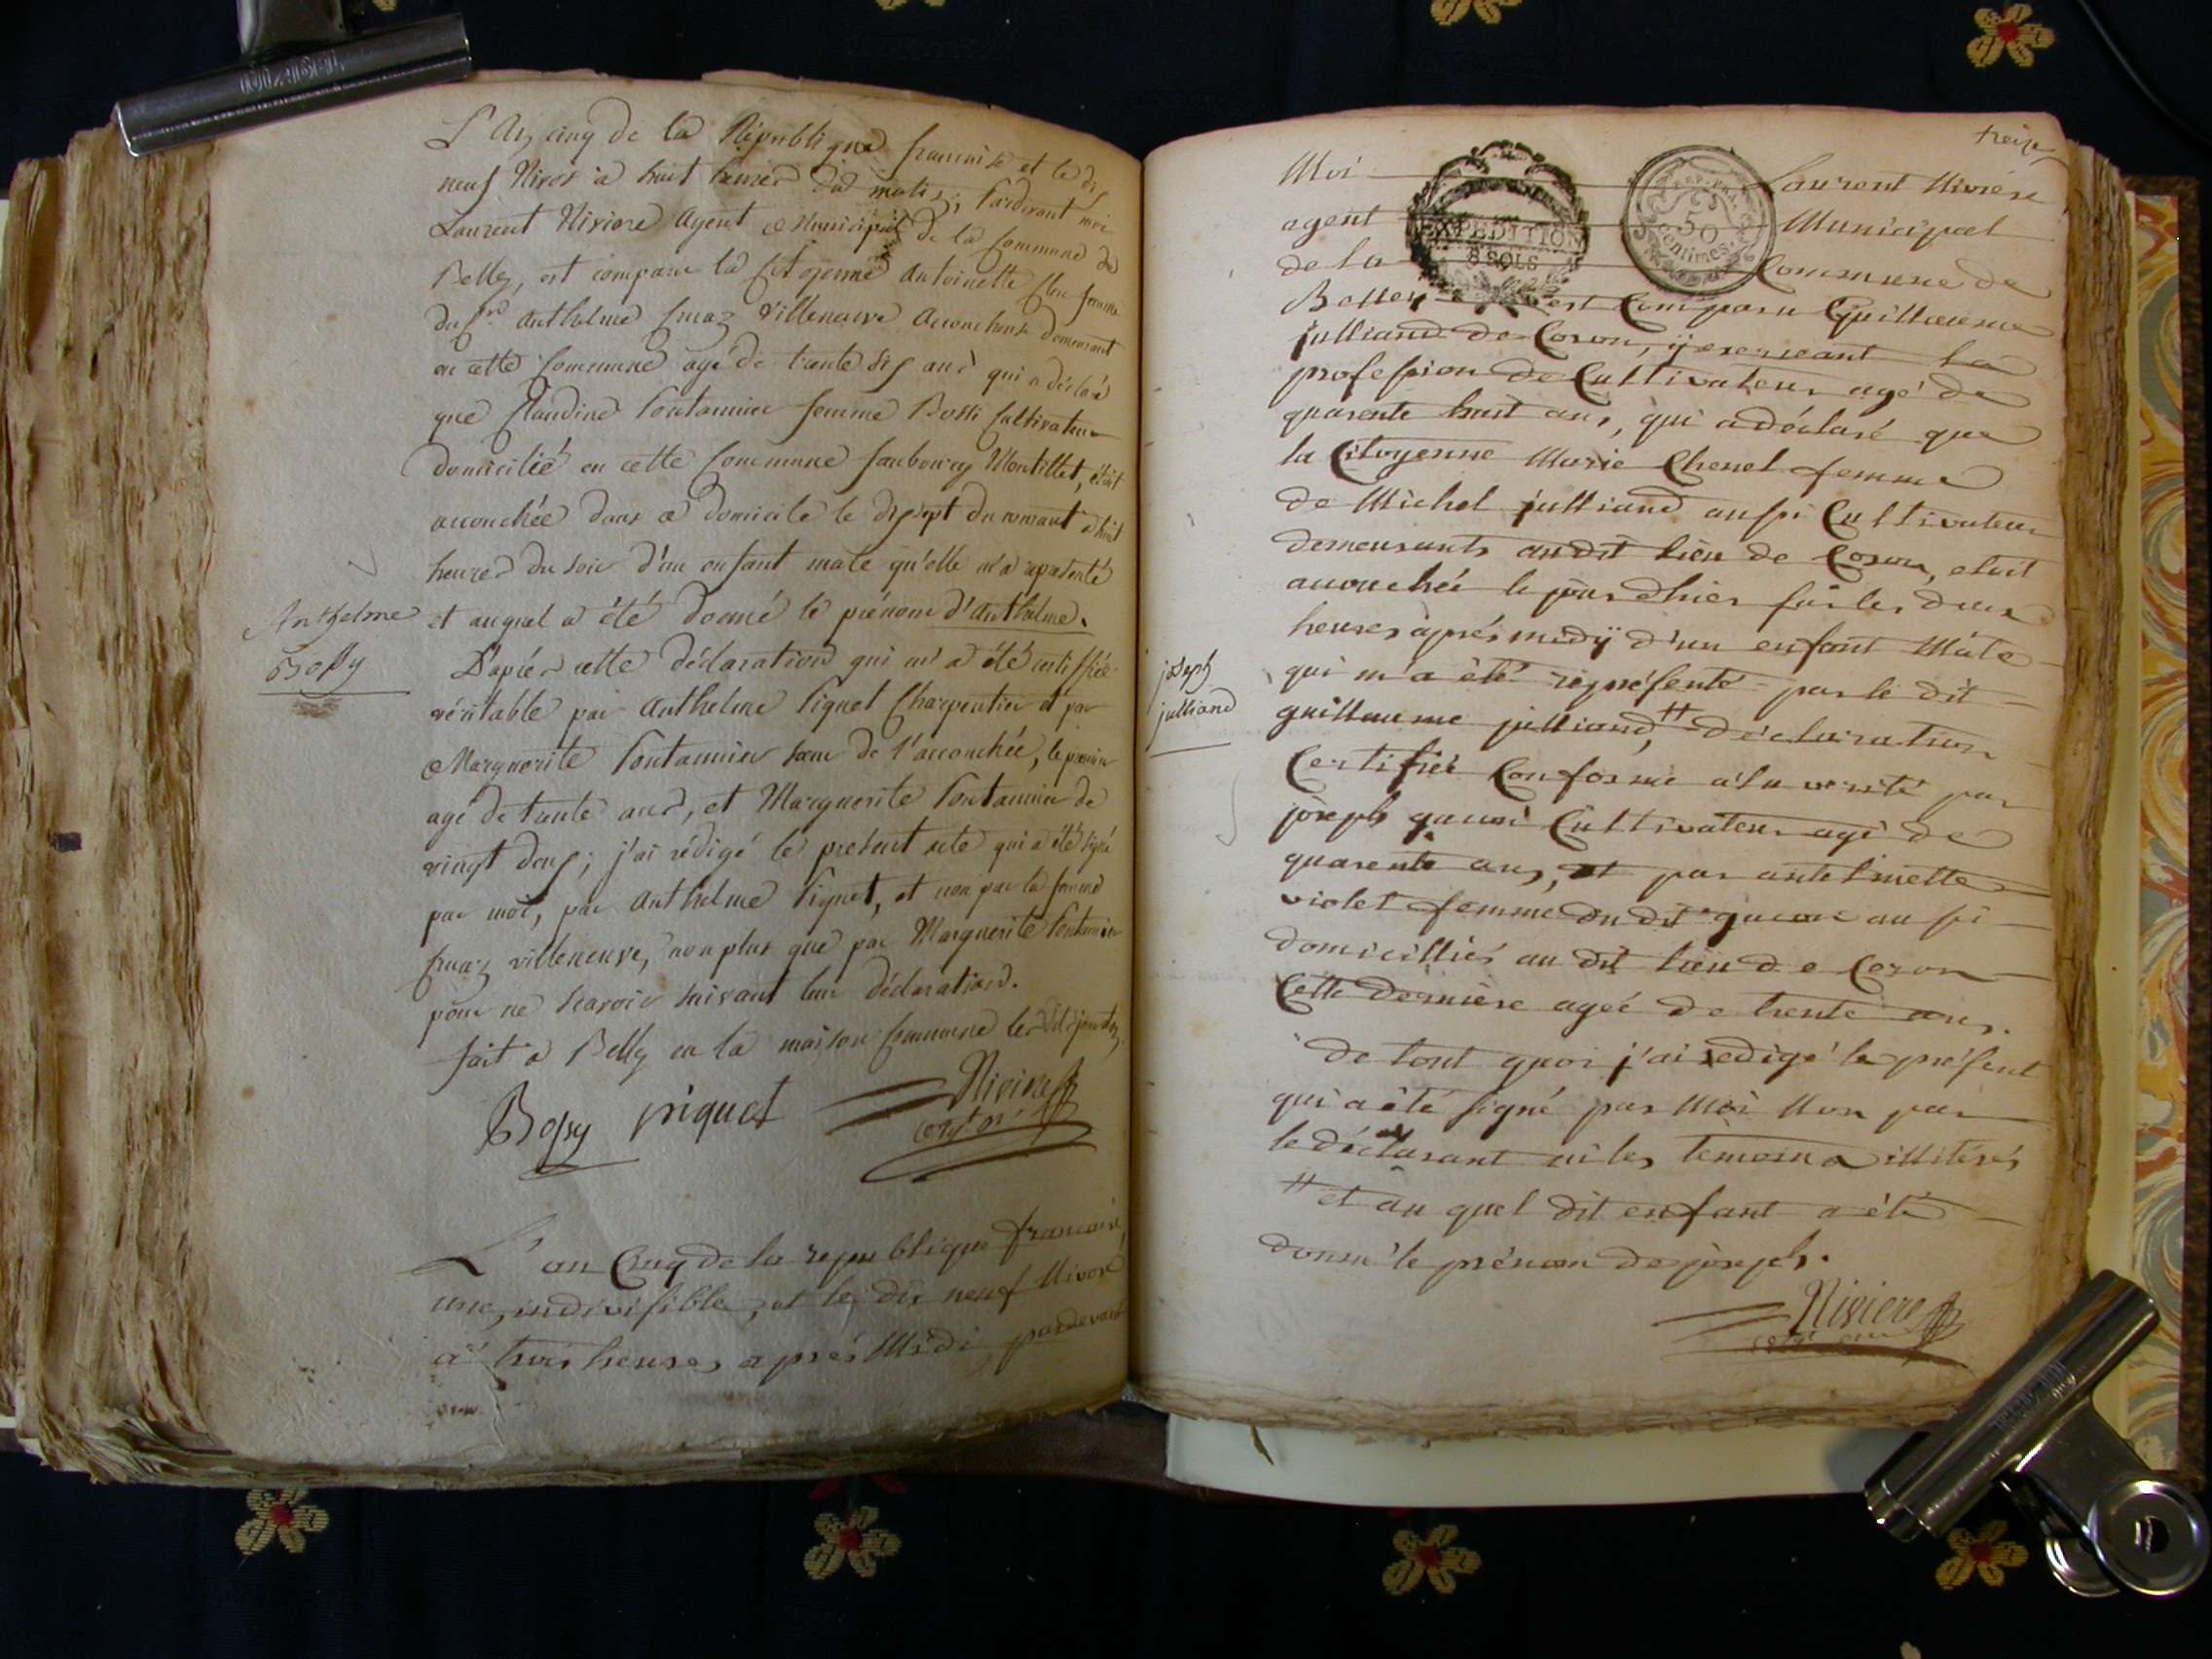 L'An cinq de la République francaise et le dix
neuf Nivos à huit heures du matin, Pardevant moi
Laurent Niviere Agent Municipal de la Commune de
Belley, est comparue la Citoyenne Antoinette femme
du Cn. Anthelme Cruaz Villeneuve Accoucheuse demeurant
en cette Commune agé de trante six ans qui a déclaré
que Claudine Pontannier femme Bossi Cultivateur
domicilié en cette Commune faubourg Montillet, étoit
accouchée dans a domicile le dixsept du courant à huit
heures du soir d'un enfant male qu'elle m'a représenté
et auquel a été donné le prénom d'Anthelme.
Anthelme
Bossy
D'après cette déclaration qui m'a été certiffiée
véritable par Anthelme Piquet Charpentier et par
Marguerite Pontannier soeur de l'accouchée, le premier
agé de trante ans, et Marguerite Pontannier de
vingt deux; j'ai rédigé le présent acte qui a été signé
par moi, par Anthelme Piquet, et non par la femme
Cruaz villeneuve, non plus que par Marguerite Pontannier
pour ne scavoir suivant leur déclaration.
fait à Belley en la maison Commune les dits jour
Bossy piquet Niviere
L'an Cinq de la republique francaise,
une, indivisible, et le dix neuf Nivose
à trois heures après Midi pardevant
treize
Moi Laurent Niviere
EXPEDITION
8 SOLS
50
Centimes.
agent Municipal
de la Commune de
Belley est Comparu Guillaume
julliand de Coron, y exerceant la
profession de Cultivateur agé de
quarente huit ans, qui a déclaré que
la Citoyenne Marie Chenel femme
de Michel julliand aussi Cultivateur
demeurants au dit lieu de Coron, etoit
accouchée le jour d'hier sur les deux
heures après midy d'un enfant Mâle
qui m'a été représenté par le dit
joseph
julliand
guillaume julliand, # déclaration
Certifiée Conforme à la verité par
joseph Cultivateur agé de
quarente ans, et par antelmette
violet femme du dit aussi
domicilliés au dit lieu de Coron
Cette dernière ageé de trente ans.
de tout quoi j'ai redigé le présent
qui a été signé par Moi Non par
le déclarant ni les témoins illiterés
# et au quel dit enfant a été
donné le prénom de joseph.
Niviere